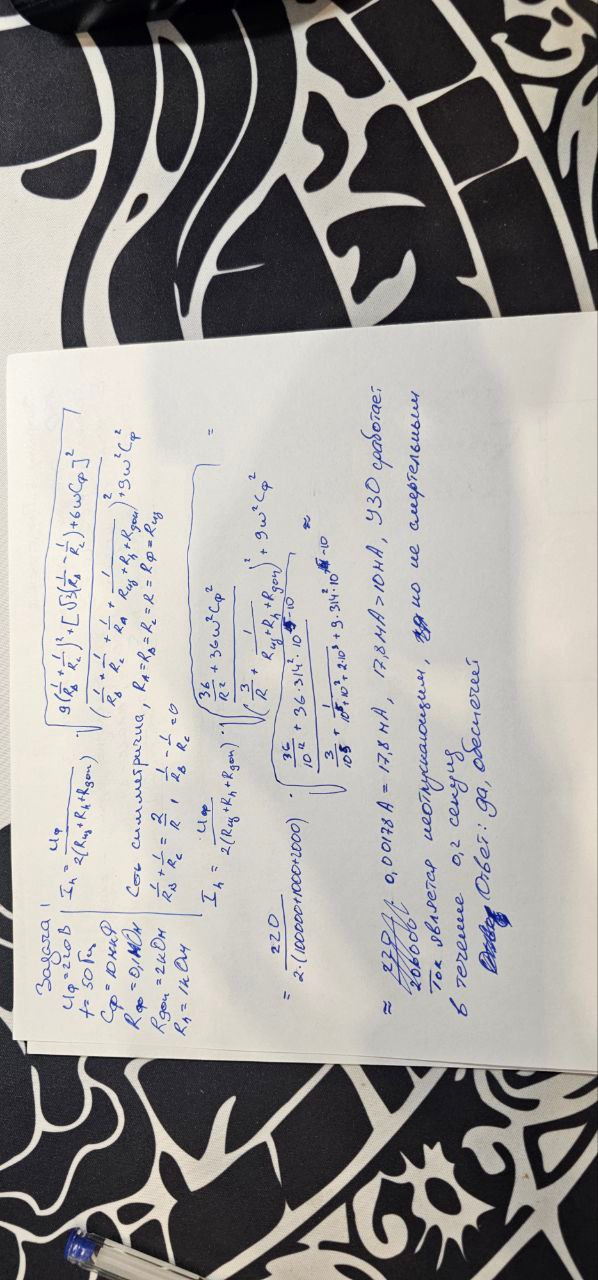 Задача 1
Uф = 220В
f = 50 Гц
Cф = 10 мкФ
Rф = 0,1 МОм
Rдоп = 2 кОм
Rh = 1 кОм
Ih = Uф / 2(Rиз+Rh+Rдоп) · √( 9(1/RB + 1/Rc)² + [√3(1/RB − 1/Rc) + 6ωCф]² / (1/RB + 1/Rc + 1/RA + 1/(Rиз+Rh+Rдоп))² + 9ω²Cф² )
Сеть симметрична, RA = RB = Rc = R = Rф = Rиз
1/RB + 1/Rc = 2/R , 1/RB − 1/Rc = 0
Ih = Uф / 2(Rиз+Rh+Rдоп) · √( 36/R² + 36ω²Cф² / (3/R + 1/(Rиз+Rh+Rдоп))² + 9ω²Cф² ) =
= 220 / 2·(100000+1000+2000) · √( 36/10¹² + 36·314²·10 / 3/10⁵ + 1/(10⁵+10³+2·10³) + 9·314²·10 ) ≈
≈ 0,00178 А = 17,8 мА , 17,8 мА > 10 мА, УЗО сработает
Ток является неотпускающим, но не смертельным
в течение 0,2 секунд
Ответ: да, обеспечит